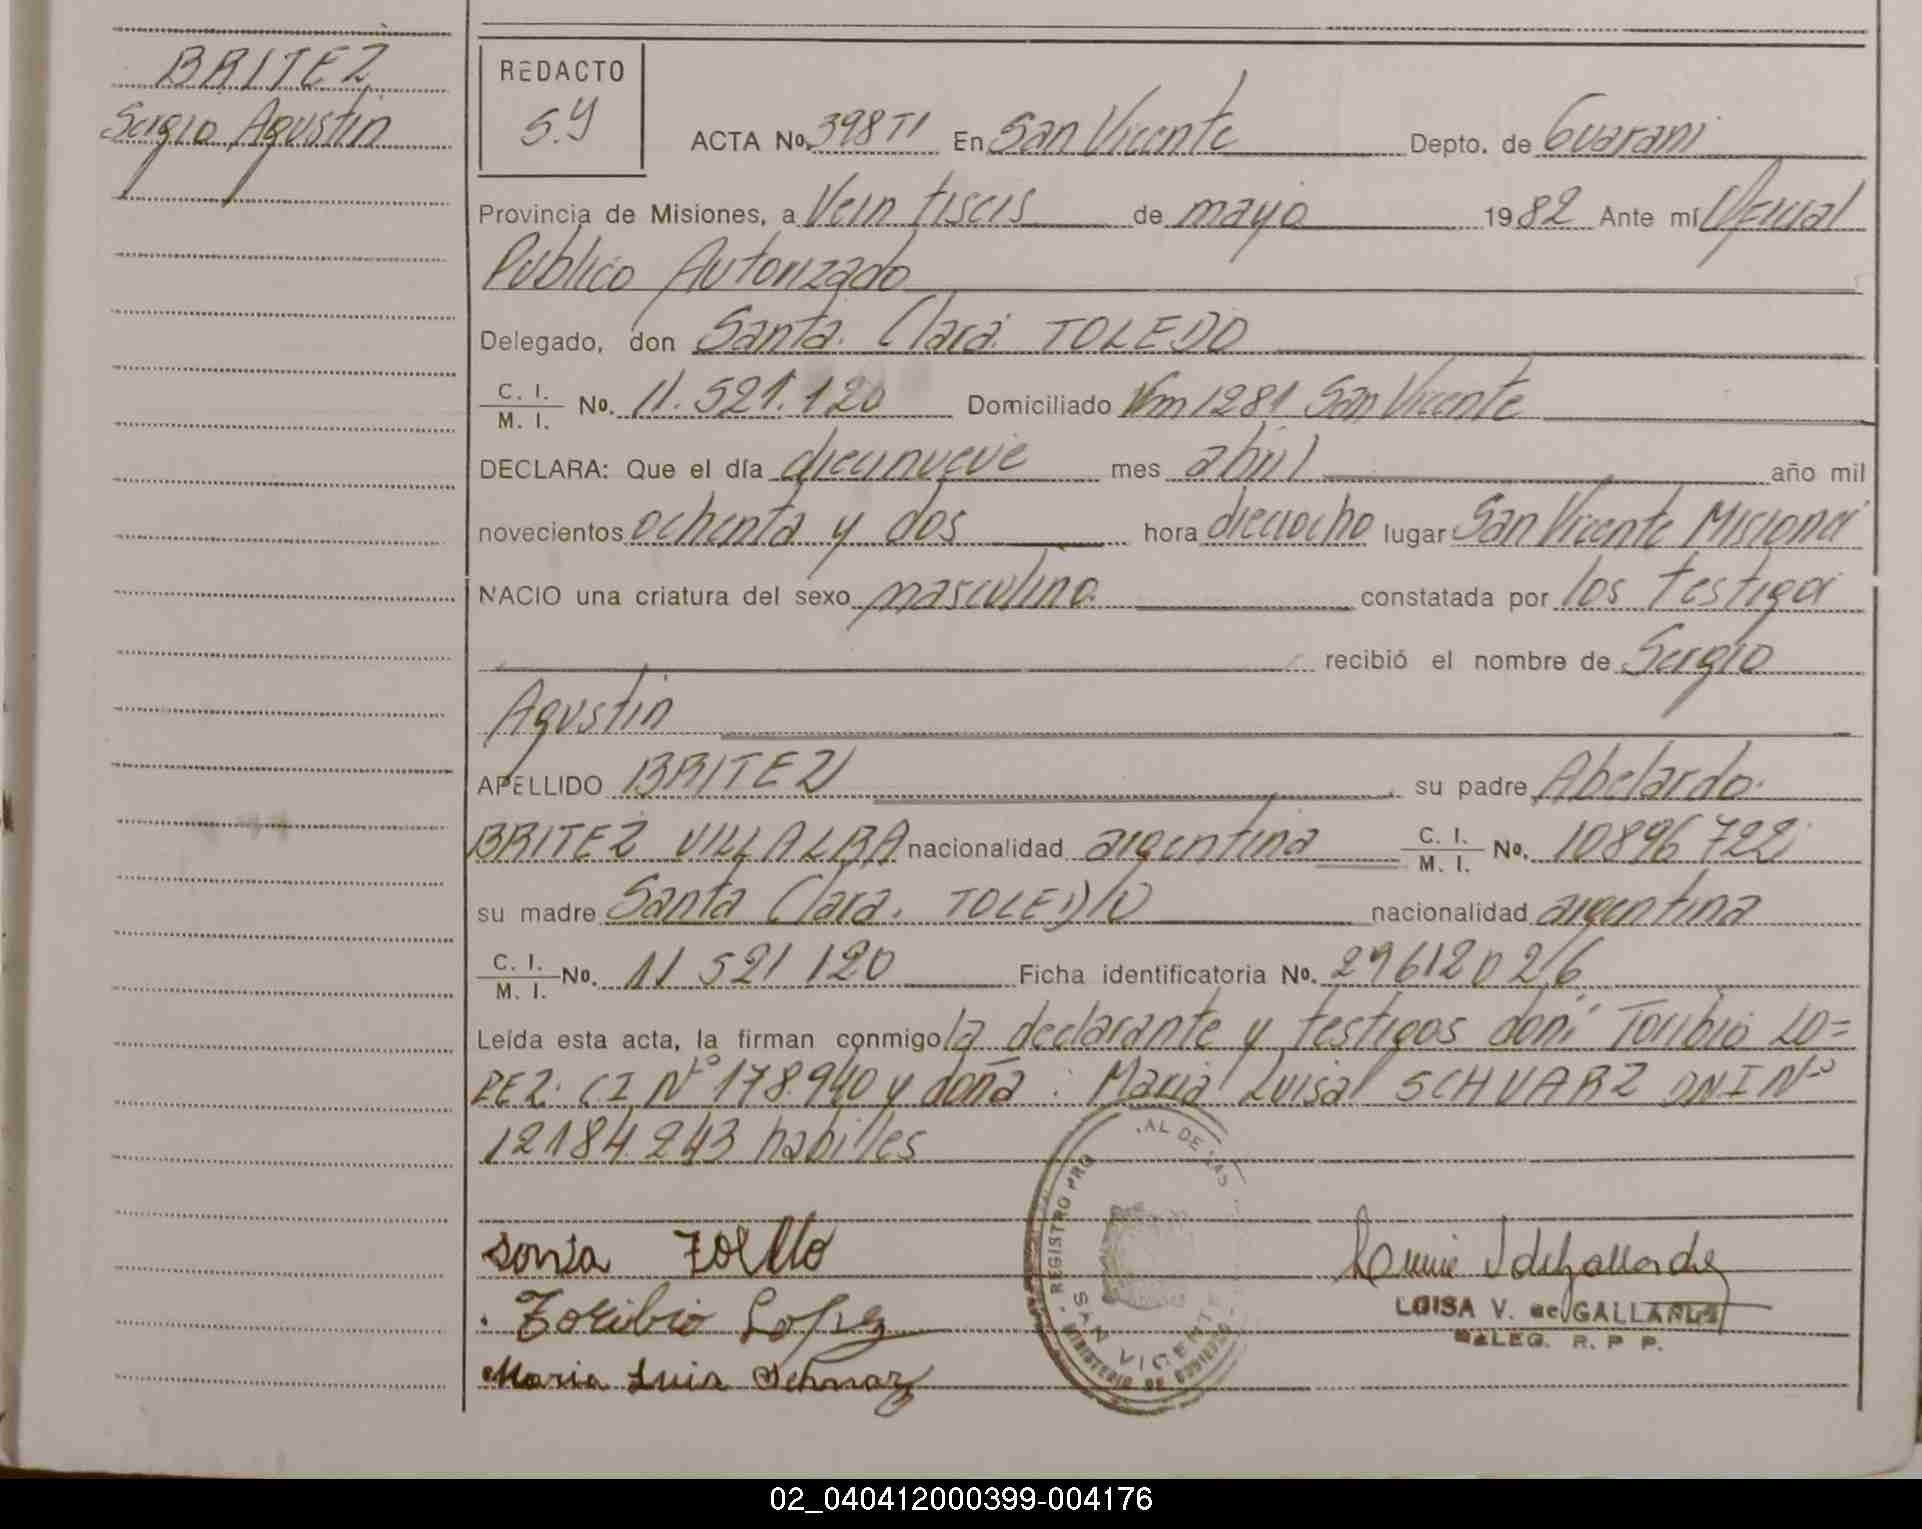 BRITEZ
Sergio Agustin
REDACTO
S.Y
ACTA No. 398 TI En San Vicente Depto. de Guarani
Provincia de Misiones, a Vein tiseis de mayo 1982 Ante mí Oficial
Publico Autorizado
Delegado, don Santa Clara TOLEDO
C. I. / M. I. No. 11.521.120 Domiciliado Km 1281 San Vicente
DECLARA: Que el día diecinueve mes abril año mil
novecientos ochenta y dos hora dieciocho lugar San Vicente Misiones
NACIO una criatura del sexo masculino constatada por los testigos
recibió el nombre de Sergio
Agustin
APELLIDO BRITEZ su padre Abelardo
BRITEZ VILLALBA nacionalidad argentina C. I. / M. I. No. 10896722
su madre Santa Clara TOLEDO nacionalidad argentina
C. I. / M. I. No. 11 521 120 Ficha identificatoria No. 29612026
Leída esta acta, la firman conmigo la declarante y testigos don: Toribio LO=
PEZ CI Nº 178.940 y doña: Maria Luisa SCHVARZ DNI Nº
12184.243 habilles
Toribio Lopez
Maria Luisa
REGISTRO PRO AL DE LAS
SAN VICENTE
MINISTERIO DE GOBIERNO
LUISA V. de GALLARDO
DELEG. R. P P.
02_040412000399-004176